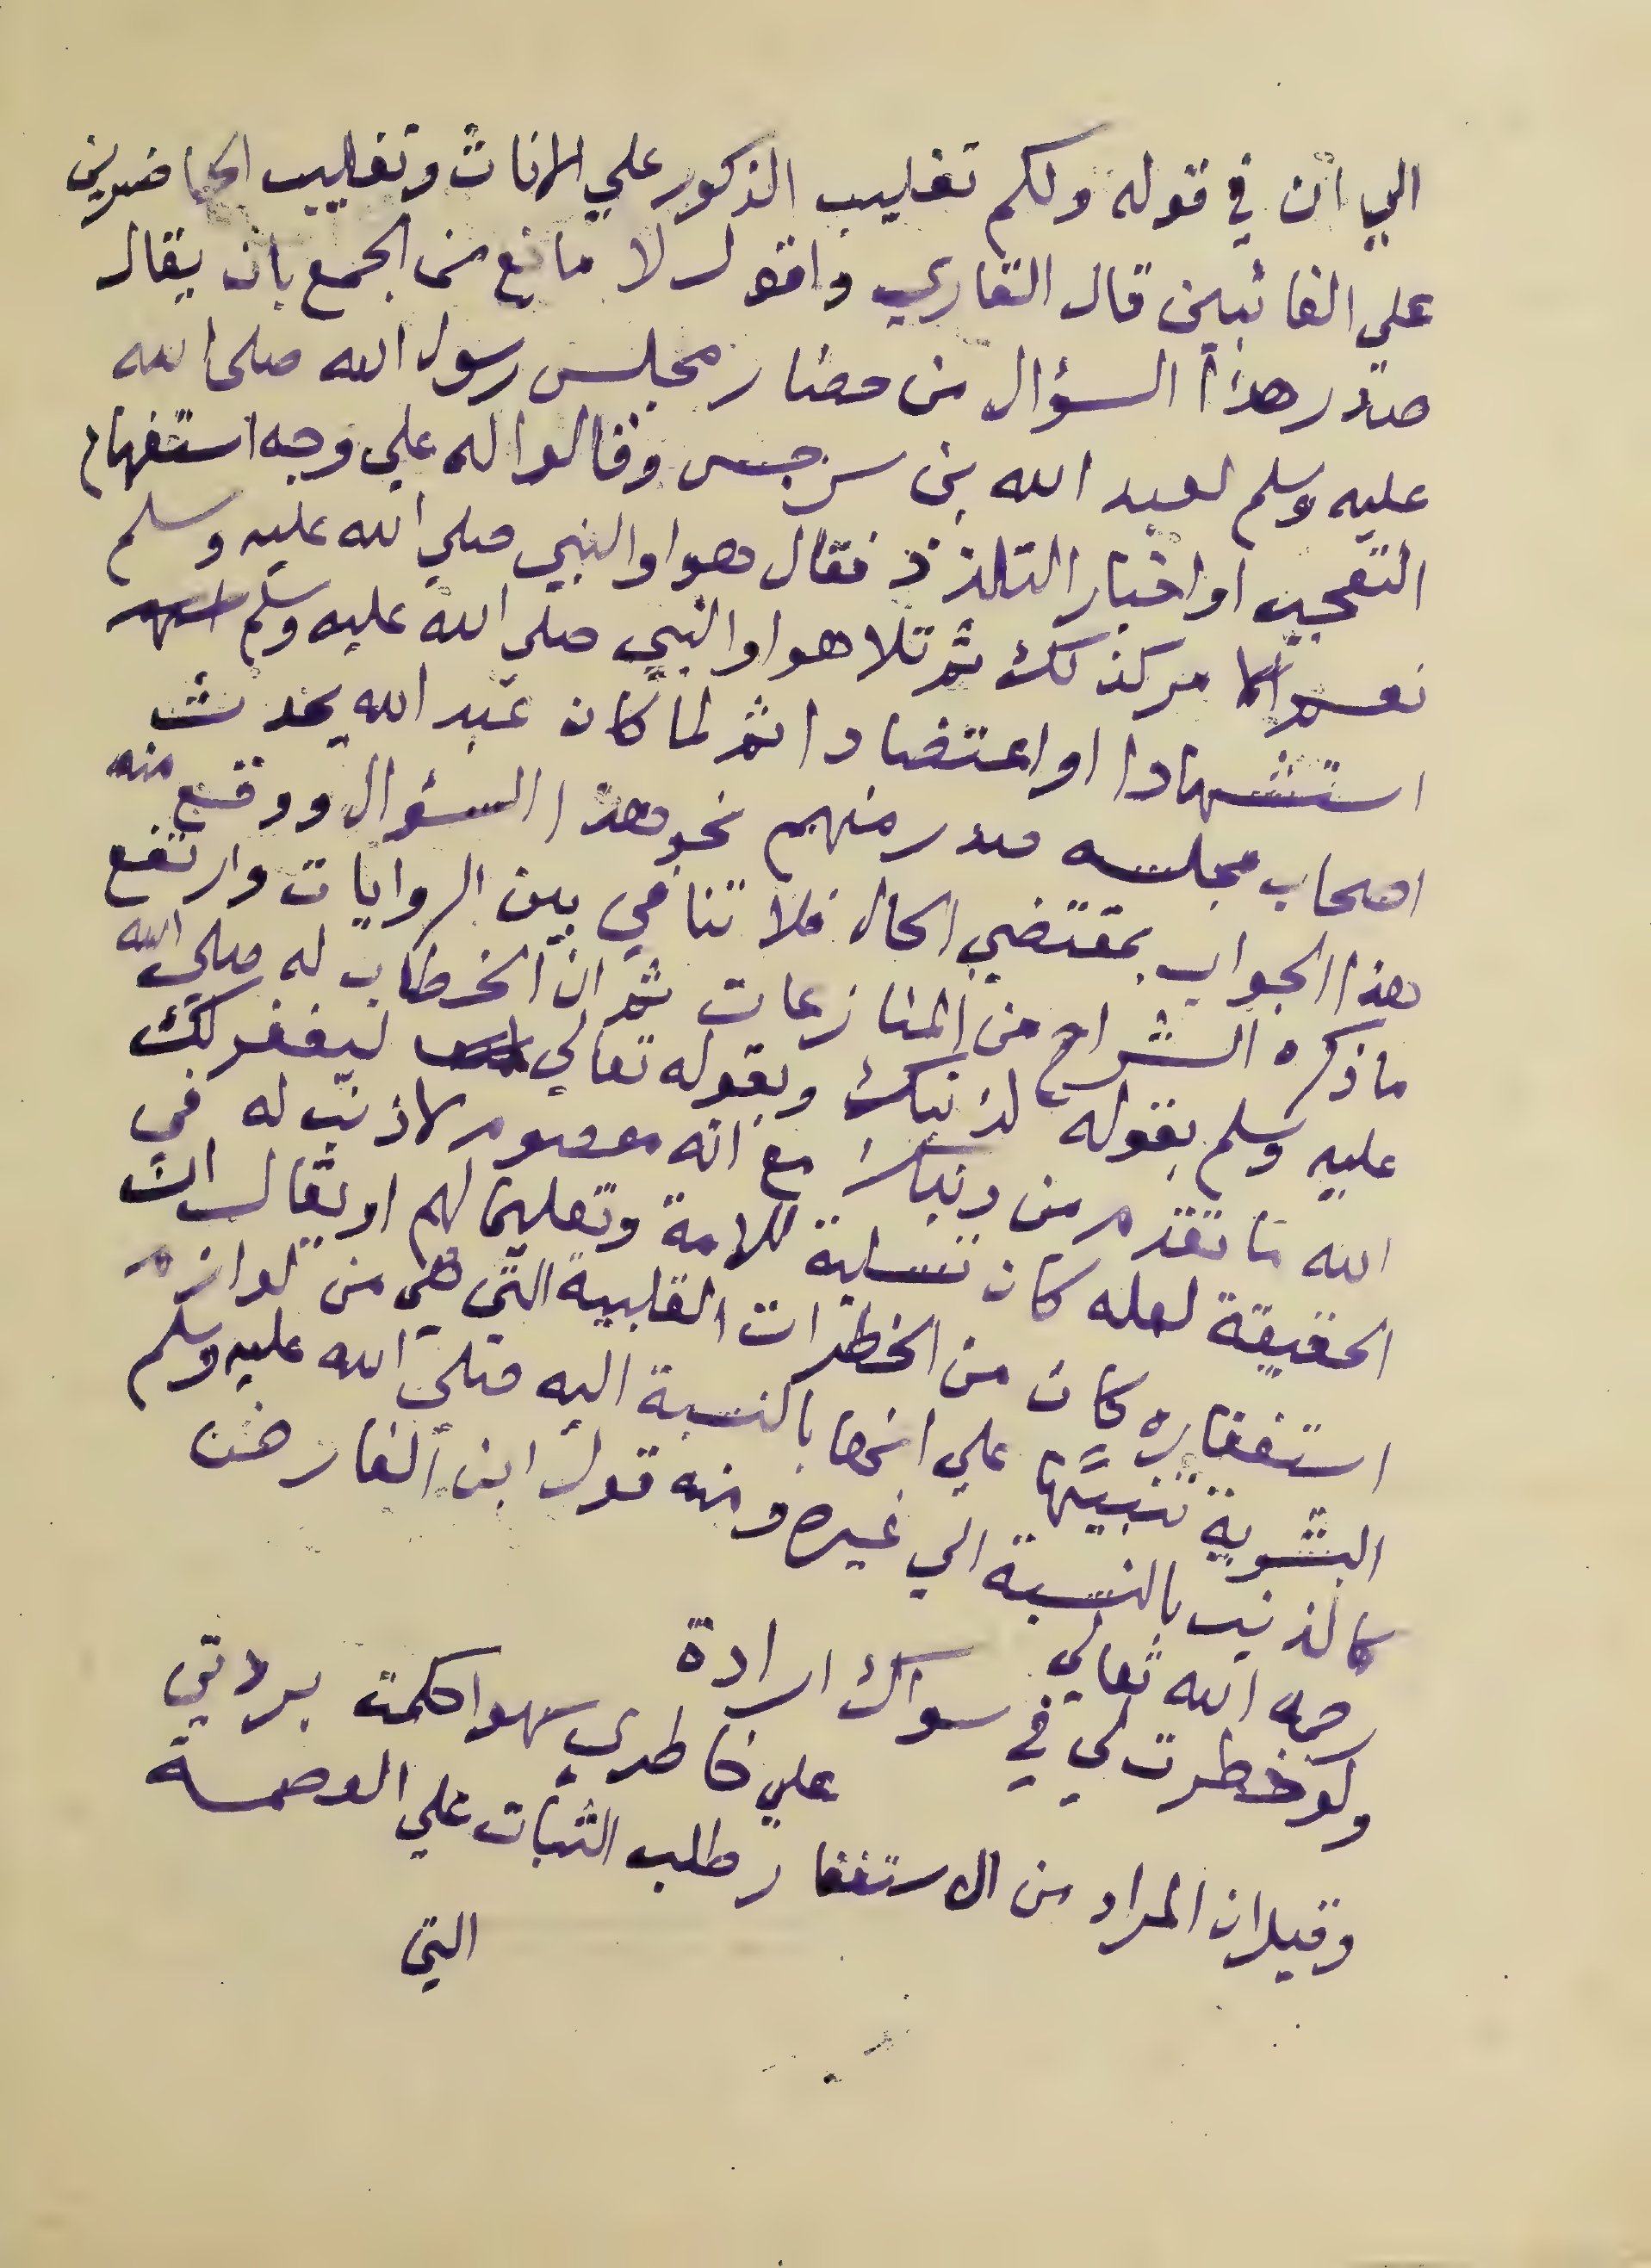 الي ان في قوله ولكم تغليب الذكور علي الاناث وتغليب الحاضرين
علي الغائبين قال القاري واقول لا مانع من الجمع بان يقال
صدر هذا السؤال من حضار مجلس رسول الله صلى الله
عليه وسلم لعبد الله بن سرجس وقالوا له علي وجه استفهام
التعجب او اخبار التلذذ فقال هو او النبي صلي الله عليه وسلم
نعم الامر كذلك ثم تلا هو او النبي صلي الله عليه وسلم
استشهادا او اعتضادا ثم لما كان عبد الله يحدث
اصحاب مجلسه صدر منهم نحو هذا السؤال ووقع منه
هذا الجواب بمقتضي الحال فلا تنافي بين الروايات وارتفع
ما ذكره الشراح من المنازعات ثم ان الخطاب له صلي الله
عليه وسلم بقوله لذنبك وبقوله تعالي ليغفر لك
الله ما تقدم من ذنبك مع انه معصوم لاذنب له في
الحقيقة لعله كان تسلية للامة وتعليما لهم او يقال ان
استغفاره كان من الخطرات القلبية التي هي من لوازم
البشرية تنبيها علي انها بالنسبة اليه صلى الله عليه وسلم
كالذنب بالنسبة الي غيره ومنه قول ابن الفارض
رحمه الله تعالي
ولو خطرت لي في سواك ارادة علي خاطري سهوا حكمت بردتي
وقيل ان المراد من الاستغفار طلب الثبات علي العصمة
التي